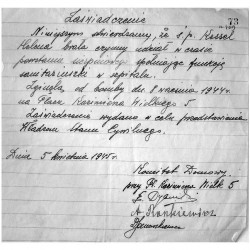 73
Zaświadczenie
Niniejszym stwierdzamy, że ś.p. Kessel
Helena brała czynny udział w czasie
powstania spełniając funkcję
sanitariuszki w szpitalu.
Zginęła od bomby dn 8 września 1944 r.
na Placu Kazimierza Wielkiego 5
Zaświadczenie wydano w celu przedstawienia
Władzom Stanu Cywilnego.
Dnia 5 kwietnia 1945 r.
Komitet Domowy
przy Pl. Kazimierza Wielk. 5
A. Rankiewicz